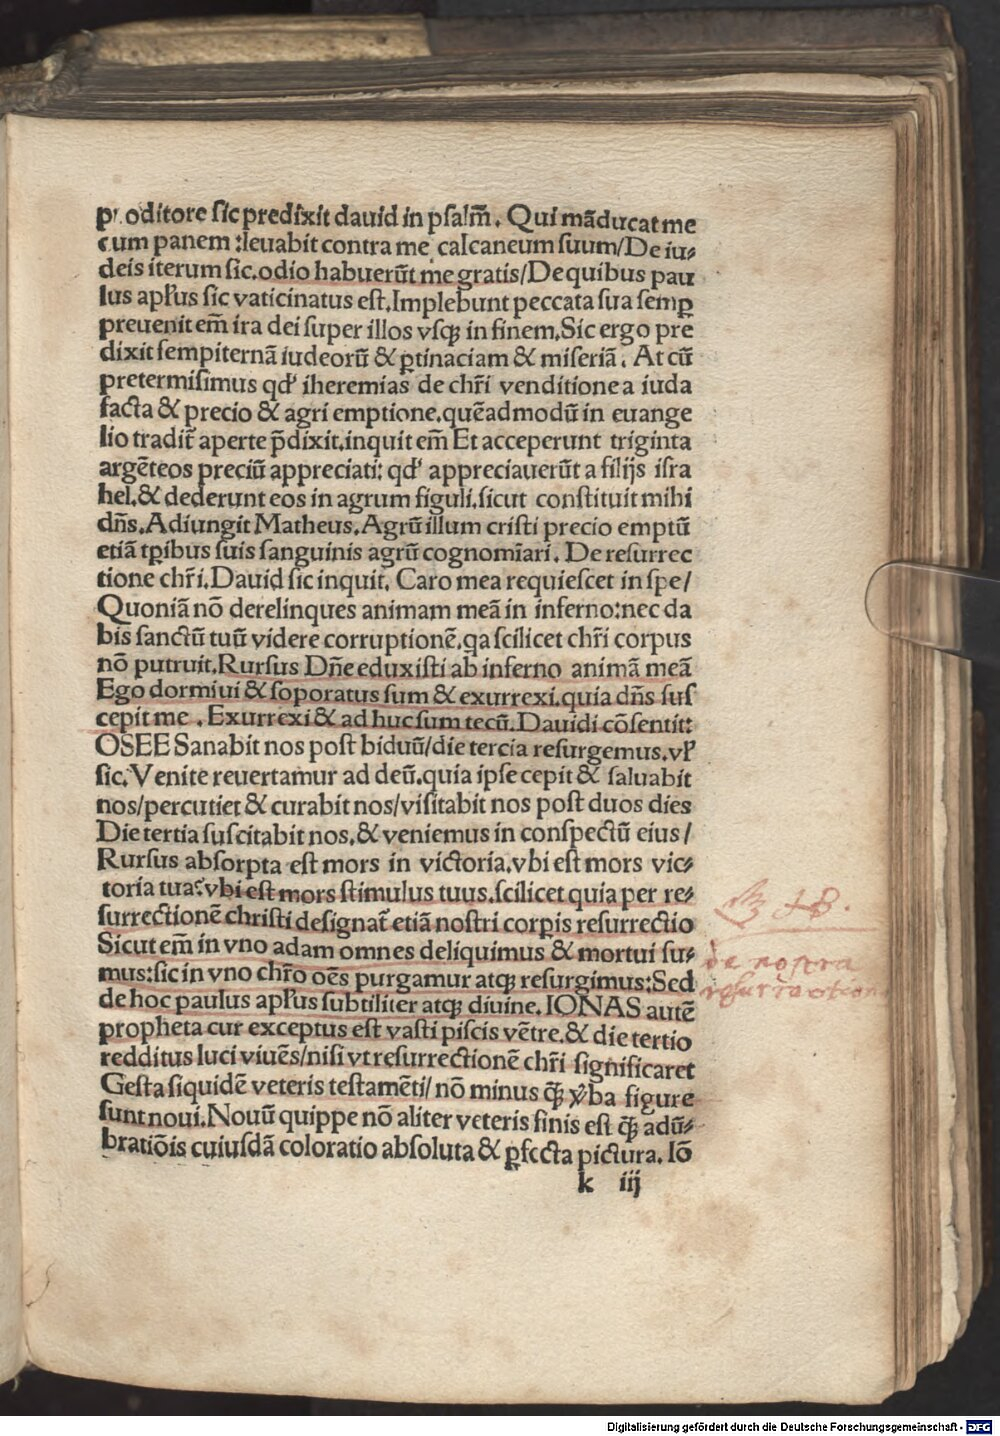 proditore sic predixit dauid in psalm̄. Qui mãducat me
cum panem :leuabit contra me calcaneum suum/De iu⸗
deis iterum sic.odio habuerũt me gratis/De quibus pau
lus apłus sic vaticinatus est.Implebunt peccata sua semꝑ
preuenit em̃ ira dei super illos vsqꝫ in finem.Sic ergo pre
dixit sempiternã iudeorũ & ꝑtinaciam & miseriã. At cũ
pretermisimus qdʼ iheremias de chr̃i venditione a iuda
facta & precio & agri emptione.quẽadmodũ in euange
lio tradit̃ aperte p̃dixit.inquit em̃ Et acceperunt triginta
argẽteos preciũ appreciati: qdʼ appreciauerũt a filijs isra
hel.& dederunt eos in agrum figuli.sicut constituit mihi
dñs.Adiungit Matheus.Agrũ illum cristi precio emptũ
etiã tꝑibus suis sanguinis agrũ cognomĩari. De resurrec
tione chr̃i.Dauid sic inquit. Caro mea requiescet in spe/
Quoniã nõ derelinques animam meã in inferno:nec da
bis sanctũ tuũ videre corruptionẽ.qa scilicet chr̃i corpus
nõ putruit.Rursus Dñe eduxisti ab inferno animã meã
Ego dormiui & soporatus sum & exurrexi.quia dñs sus
cepit me . Exurrexi & ad huc sum tecũ.Dauidi cõsentit:
OSEE Sanabit nos post biduũ/die tercia resurgemus.vł
sic. Venite reuertamur ad deũ.quia ipse cepit & saluabit
nos/percutiet & curabit nos/visitabit nos post duos dies
Die tertia suscitabit nos.& veniemus in conspectũ eius/
Rursus absorpta est mors in victoria.vbi est mors vic⸗
toria tua?vbi est mors stimulus tuus.scilicet quia per re⸗
surrectionẽ christi designat̃ etiã nostri corpis resurrectio
Sicut em̃ in vno adam omnes deliquimus & mortui su⸗
mus:sic in vno chr̃o oẽs purgamur atqꝫ resurgimus:Sed
de hoc paulus apłus subtiliter atqꝫ diuine.IONAS autẽ
propheta cur exceptus est vasti piscis vẽtre.& die tertio
redditus luci viuẽs/nisi vt resurrectionẽ chr̃i significaret
Gesta siquidẽ veteris testamẽti/ nõ minus qꝫ̃ v̓ba figure
sunt noui.Nouũ quippe nõ aliter veteris finis est qꝫ̃ adũ⸗
bratiõis cuiusdã coloratio absoluta & ꝑfecta pictura. Iõ
k iij
de nostra
Digitalisierung gefördert durch die Deutsche Forschungsgemeinschaft - DFG